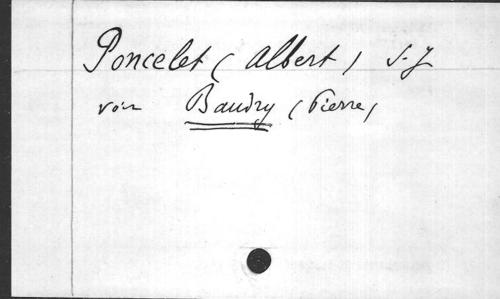 Poncelet (Albert) S.J
voir Baudry (Pierre)